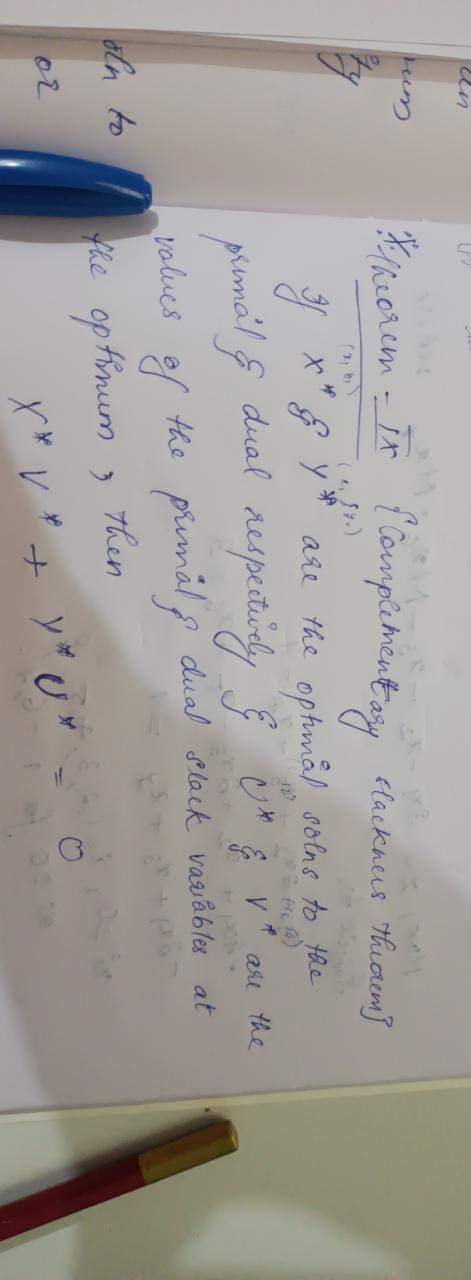 * Theorem - IX {Complementary slackness Theorem}
If X* & Y* are the optimal solns to the
primal & dual respectively & U* & V* are the
values of the primal & dual slack variables at
the optimum, then
X* V* + Y* U* = 0
soln to
or